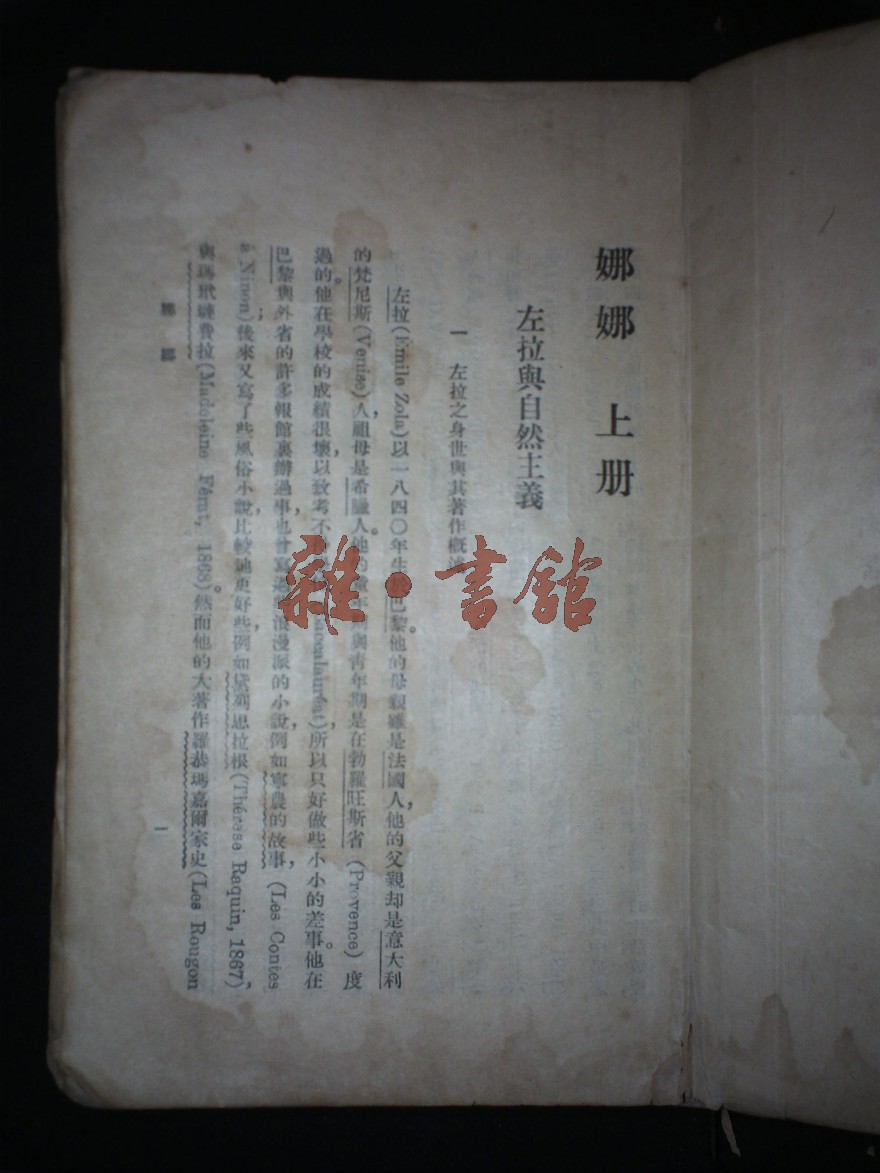 娜娜 上册
左拉與自然主義
一 左拉之身世與其著作概
左拉(Émile Zola)以一八四〇年生於巴黎。他的母親雖是法國人,他的父親却是意大利
的梵尼斯(Venise)人,祖母是希臘人。他的童年與青年期是在勃羅旺斯省(Provence)度
過的。他在學校的成績很壞,以致考不 所以只好做些小小的差事。他在
巴黎與外省的許多報館裏辦過事,也曾寫過 浪漫派的小說,例如寧農的故事,(Les Contes
à Ninon);後來又寫了些風俗小說,比較地更好些,例如黛列思拉根(Thérèse Raquin, 1867),
與瑪 費拉(Madeleine Férat, 1868)。然而他的大著作羅恭瑪嘉爾家史(Les Rougon
娜娜
一
雜·書館